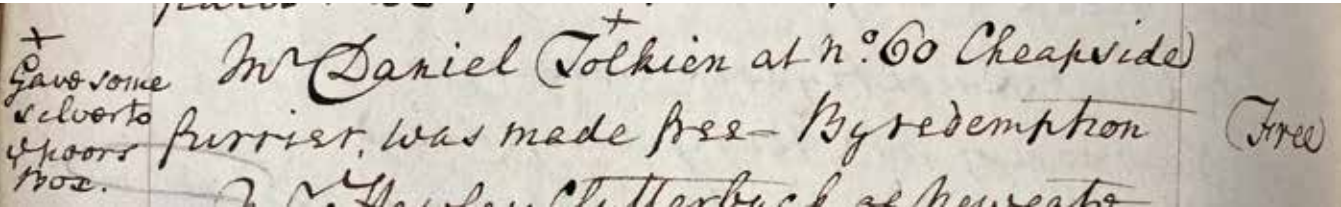 +
Gave some
silver to
ye poors
Box.
Mr Daniel Tolkien at No. 60 Cheapside
furrier, was made free - By redemption
(Free)
Clutterback at Newgate